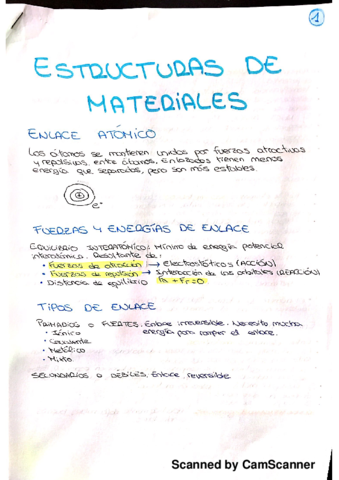 1
ESTRUCTURAS DE
MATERIALES
ENLACE ATÓMICO
Los átomos se mantienen unidos por fuerzas atractivas
y repulsivas entre átomos, enlazados tienen menos
energía que separados, pero son más estables.
e-
FUERZAS Y ENERGÍAS DE ENLACE
EQUILIBRIO INTERATÓMICO: Mínimo de energía potencial
interatómica. Resultante de:
• Fuerzas de atracción → Electrostático y (ACCIÓN)
• Fuerzas de repulsión → Interacción de los orbitales (REACCIÓN)
• Distancia de equilibrio FA + FR = 0
TIPOS DE ENLACE
PRIMARIOS O FUERTES. Enlace irreversible. Necesito mucha
• Iónico energía para romper el enlace.
• Covalente
• Metálico
• Mixto
SECUNDARIOS O DÉBILES. Enlace reversible.
Scanned by CamScanner